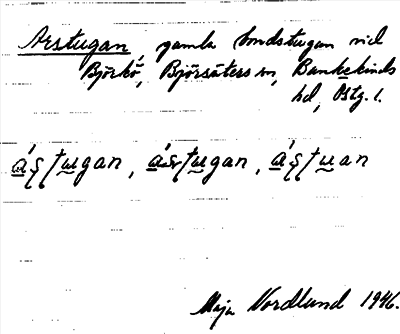 Arstugan, gamla bondstugan vid
Björkö, Björsäters sn, Bankekinds
hd, Östg. l.
áʂʈugan, ásrtugan, áʂʈuan
Maja Nordlund 1946.